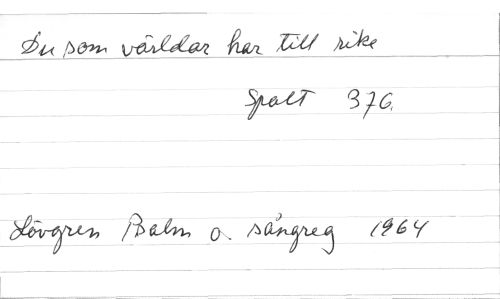 Du som världar har till rike
Spalt 376.
Lövgren Psalm o. sångreg 1964